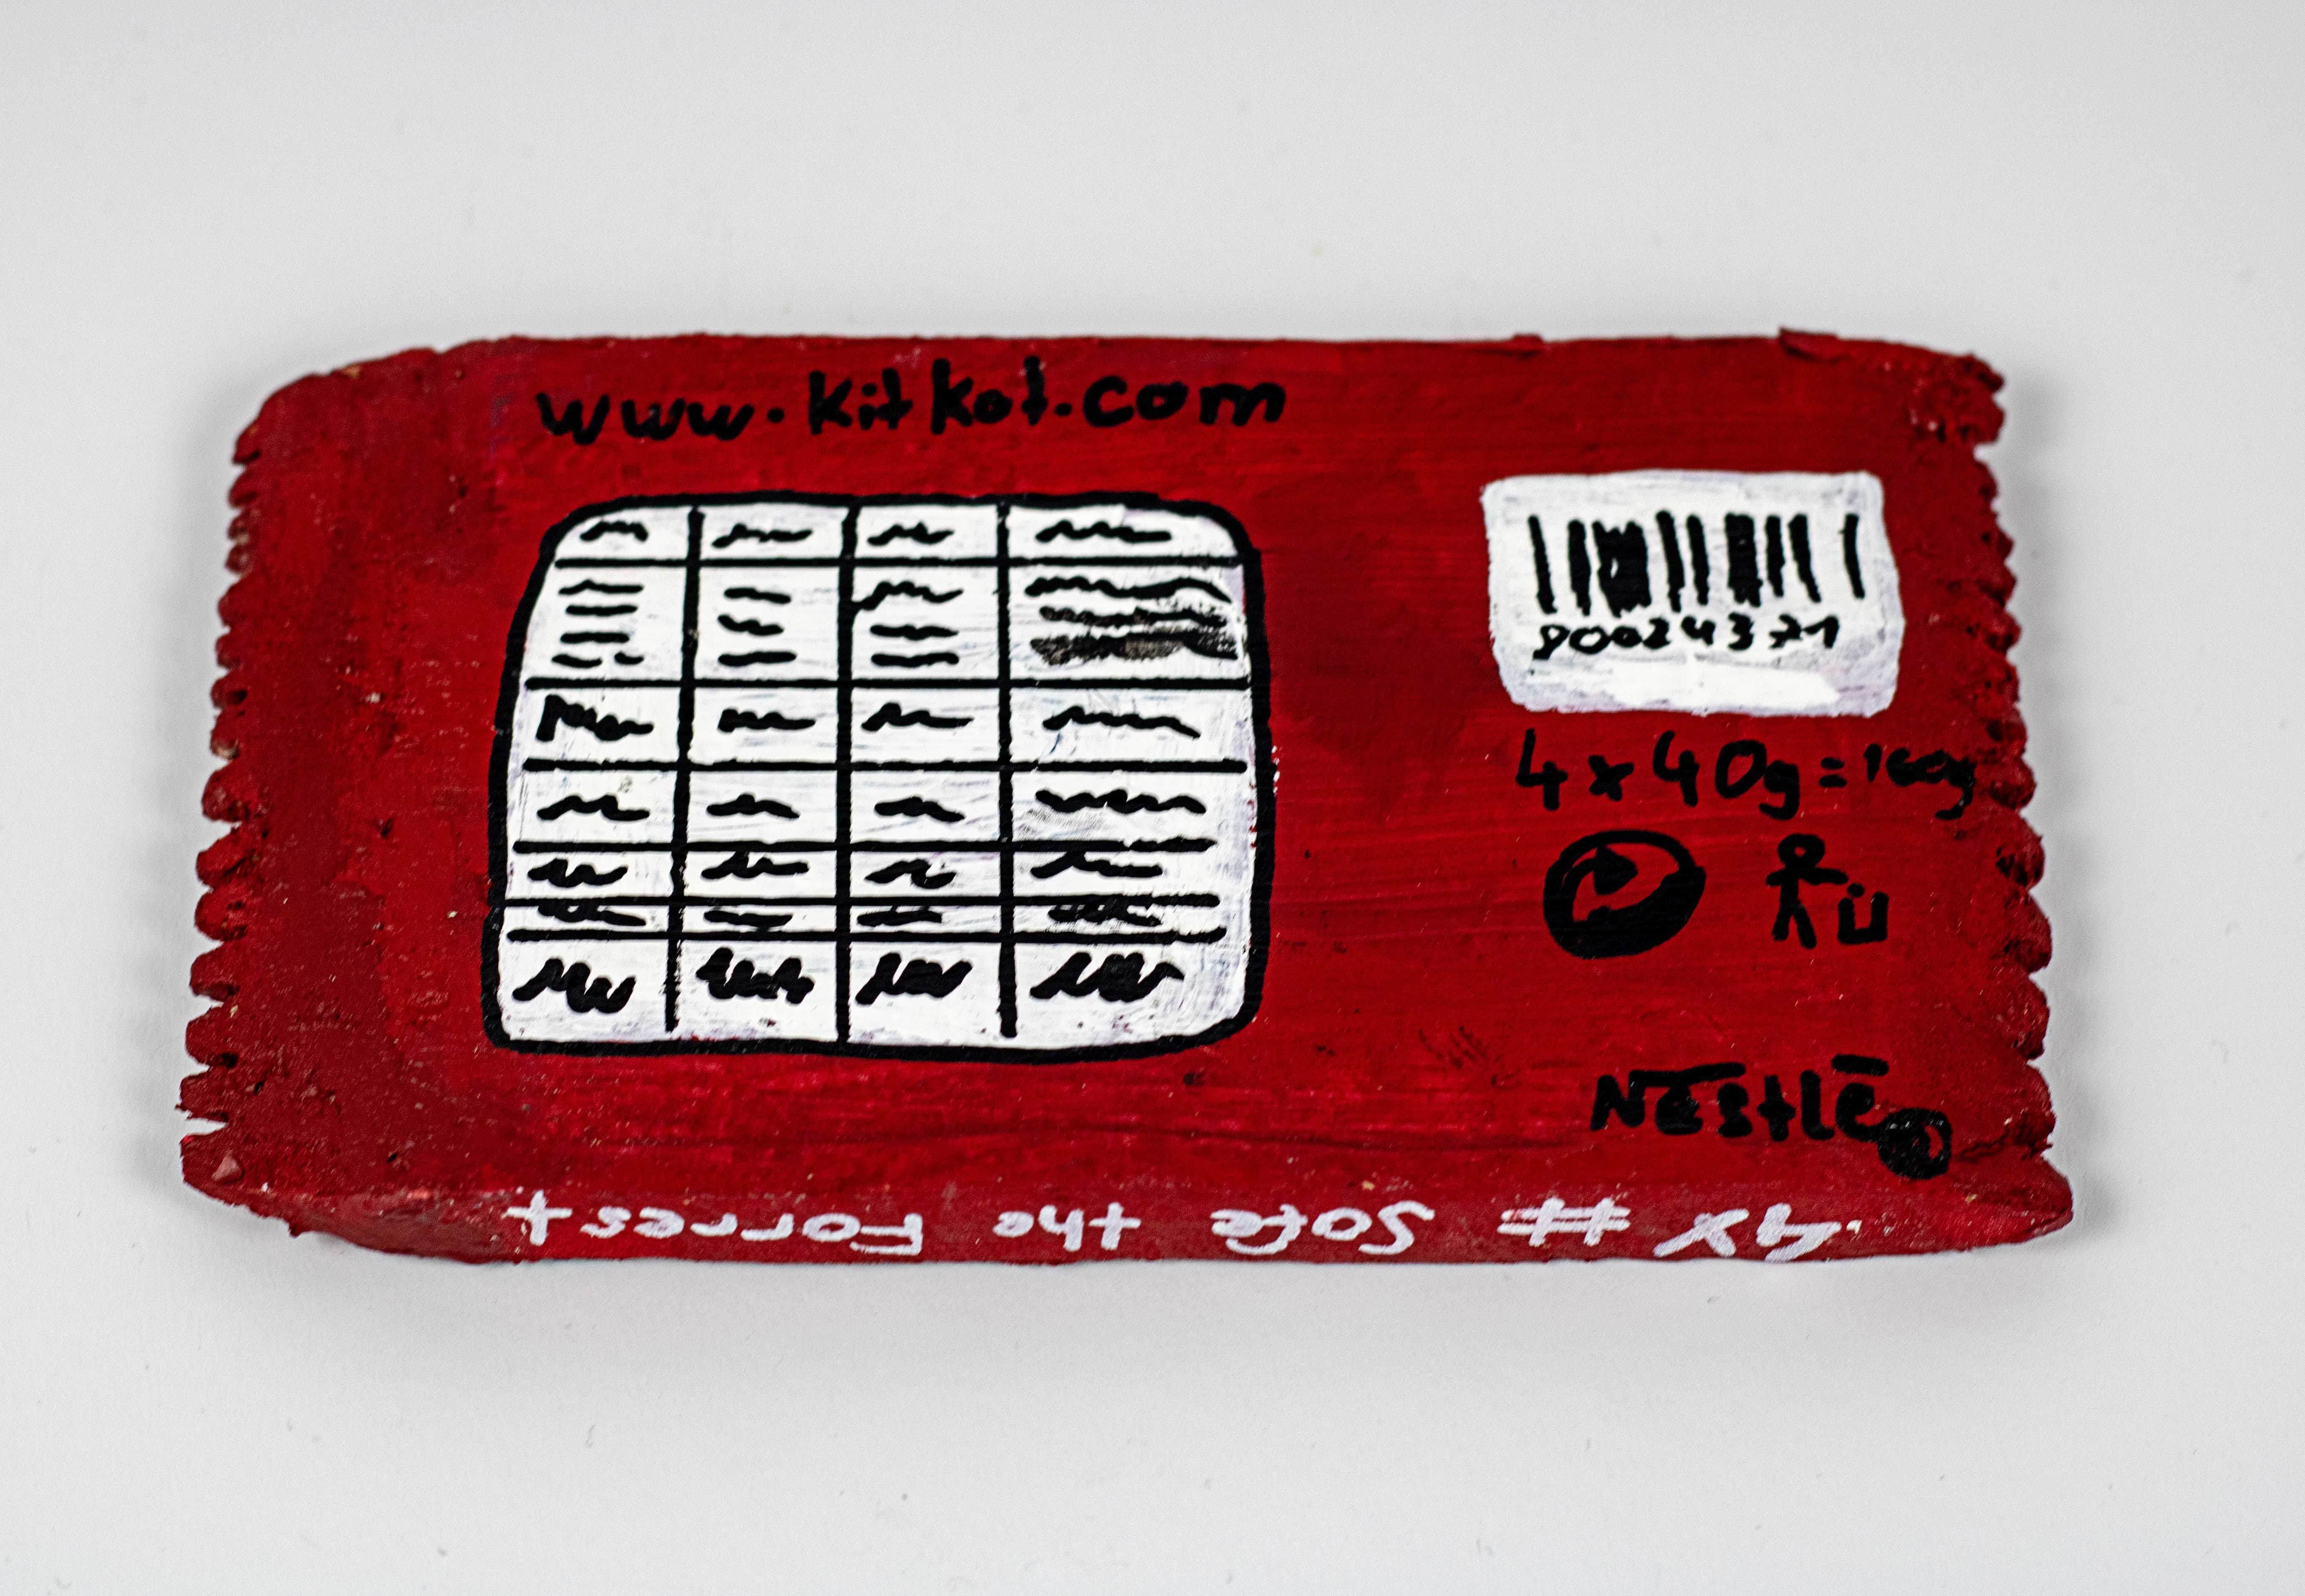 www.kitkat.com
90024371
4x40g=160g
Nestlē
4x # Safe the Forrest